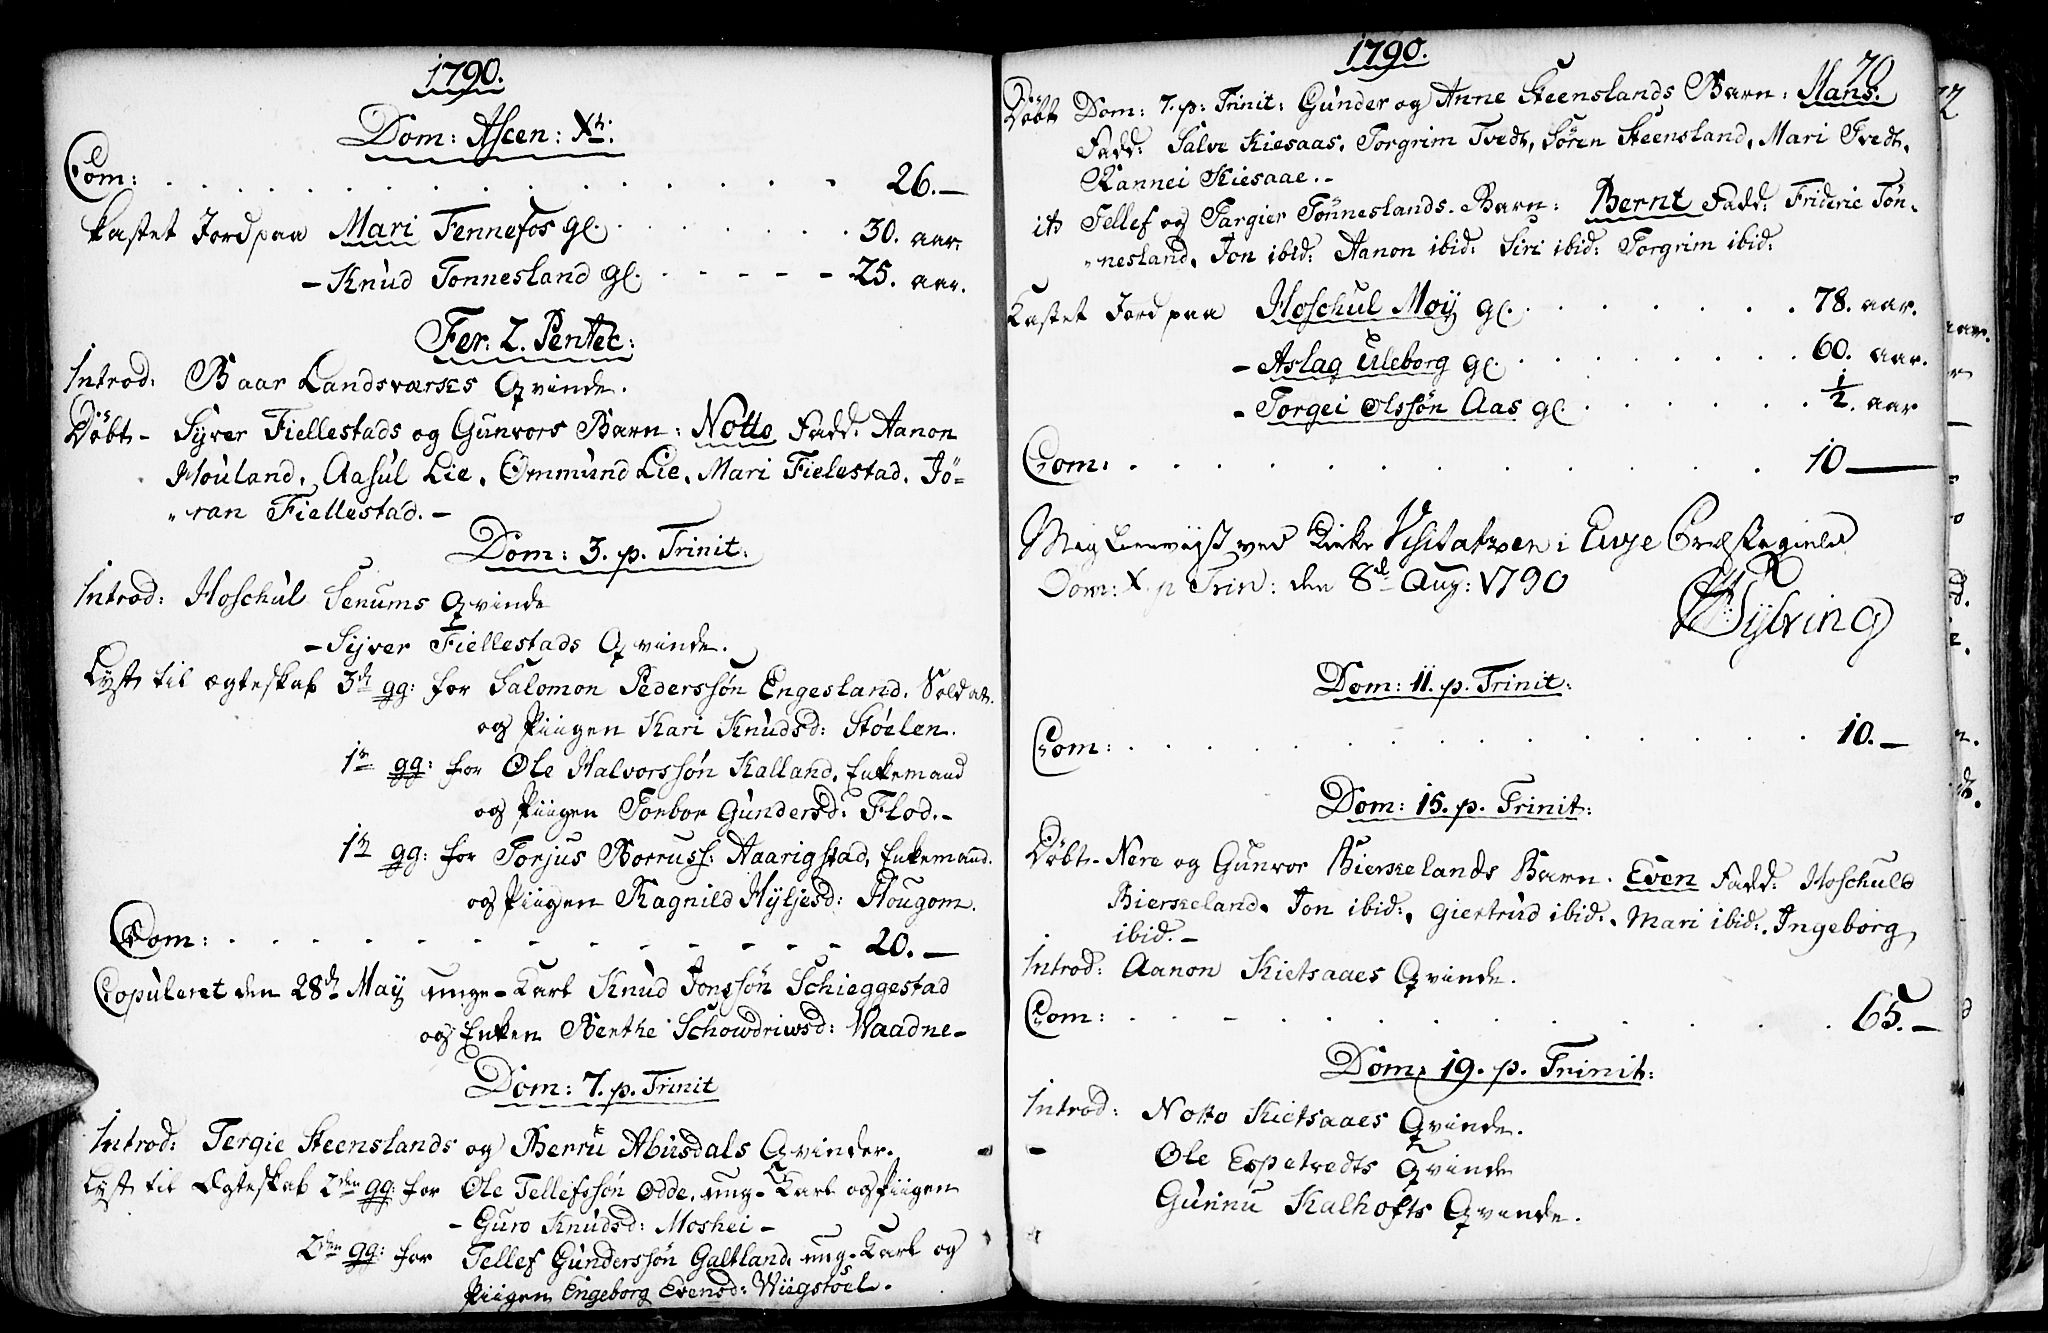 1790.
Dom: Ascen: Xti:
Com: . . . . . . . . . . . . 26.—
kastet Jord paa Mari Fennefos gl. . . . . . . 30. aar.
— Knud Tonnesland gl. - - - - 25. aar.
Fer: 2. Pentec:
Introd: Baar Landsværks Qvinde.
Döbt - Syver Fiellestads og Gunvors Barn: Notto Fadd: Aanon
Houland, Aasul Lie, Ommund Lie, Mari Fielestad, Jö=
„ran Fiellestad. —
Dom: 3. p. Trinit:
Introd: Hoschul Senums Qvinde
— Syver Fiellestads Qvinde.
Lyst til ægteskab 3die gg: for Salomon Pederssön Engesland, Soldat
og Piigen Kari Knudsd: Stöelen.
1te gg: for Ole Halvorssön Kalland, Enkemand
og Piigen Torbor Gundersd: Flod.-
1te gg: for Torjus Borruss: Haarigstad, Enkemand.
og Piigen Ragnild Hyljesd: Hougom.
Com: - - - - - - - - - - - 20.—
Copuleret den 28de May unge-Karl Knud Jonssön Schieggestad
og Enken Berthe Schowdriwsd: Vaadne-
Dom: 7. p. Trinit
Introd: Tergie Steenslands og Berru Abusdals Qvinder.
Lyst til Ægteskab 2den gg: for Ole Tellefssön Odde, ung-Karl og Piigen
- Guro Knudsd: Moshei -
2den gg: for Tellef Gunderssön Galtland, ung-Karl og
Piigen Engeborg Evensd: Wiigstöel.
1790.
70
Döbt Dom: 7. p: Trinit: Gunder og Anne Steenslands Barn: Hans.
Fadd: Salve Kiesaas, Torgrim Tvedt, Sören Steensland, Mari Tvedt,
Rannei Kiesaae.-
it: Tellef og Targier Tönneslands Barn: Bernt Fadd: Frideric Tön-
„nesland, Jon ibid: Aanon ibid: Siri ibid: Torgrim ibid:
Kastet Jord paa Hoschul Moÿ gl. . . . . . . 78. aar.
- Aslag Uleborg gl. . . . . . . 60. aar.
- Torgei Olssön Aas gl. . . . . . ½. aar
Com: . . . . . . . . . . 10—
Mig foreviist ved Kirke Visitatzen i Evje Præstegield
Dom: X. p Trin: den 8de Aug: 1790
Dom: 11. p. Trinit:
Com: . . . . . . . . . . 10.—
Dom: 15. p. Trinit:
Döbt- Nere og Gunvor Bierkelands Barn. Even Fadd: Hoschuld
Bierkeland, Jon ibid:, Giertrud ibid:, Mari ibid:, Ingeborg
ibid. -
Introd: Aanon Kietsaaes Qvinde.
Com: . . . . . . . . . . 65.—
Dom: 19. p. Trinit:
Introd: Notto Kietsaaes Qvinde.
- Ole Espetvedts Qvinde
Gunnu Kalhofts Qvinde.